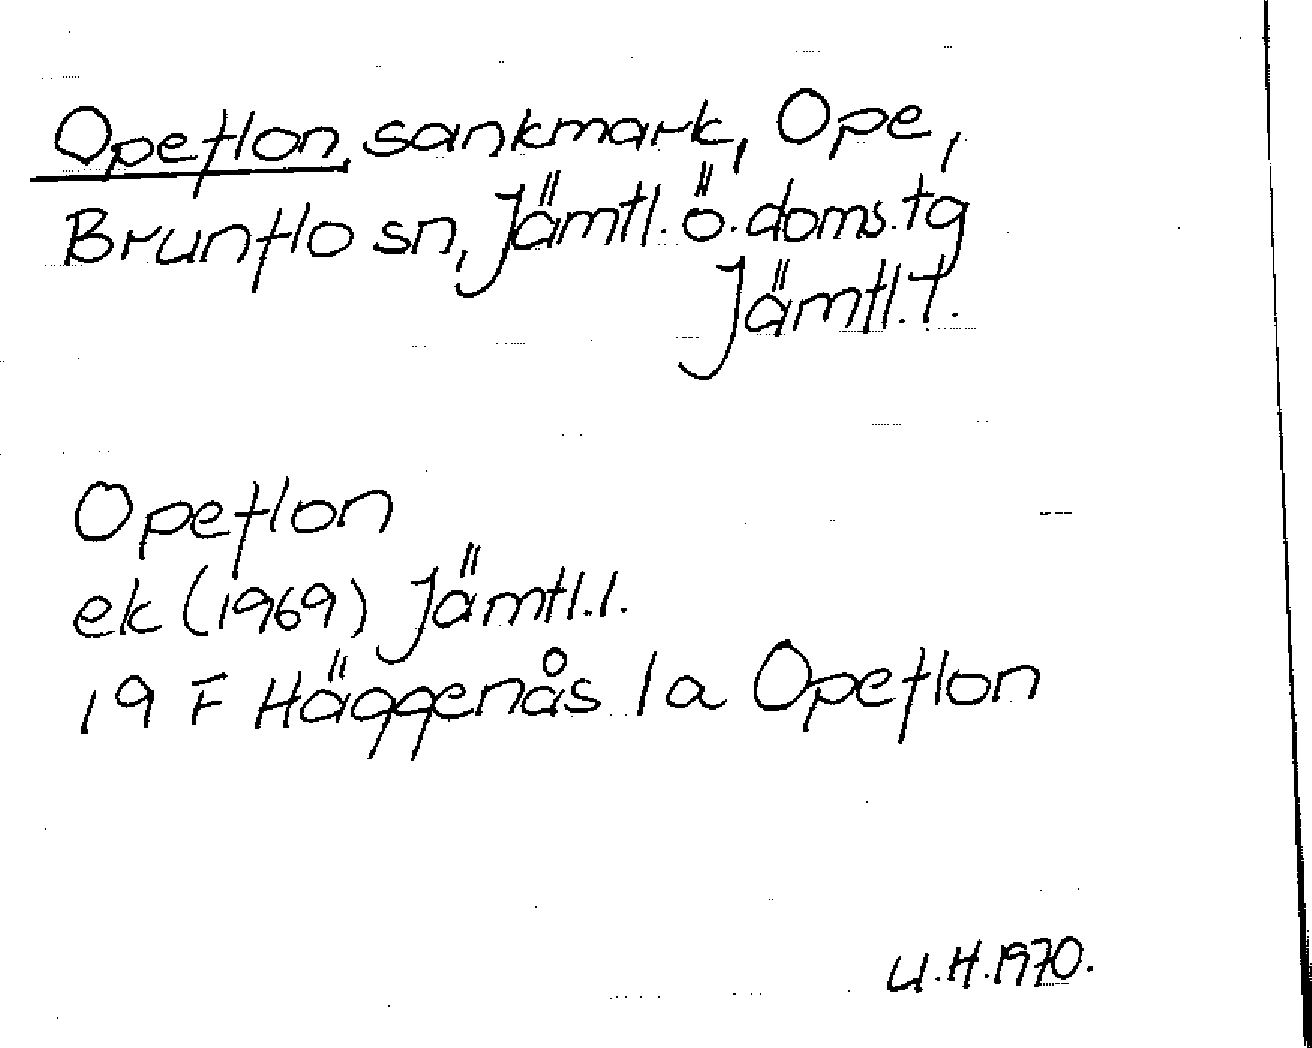 Opeflon, sankmark, Ope,
Brunflo sn, Jämtl. ö. doms.tg
Jämtl. l.
Opeflon
ek (1969) Jämtl. l.
19 F Häggenås 1a Opeflon
U.H. 1970.